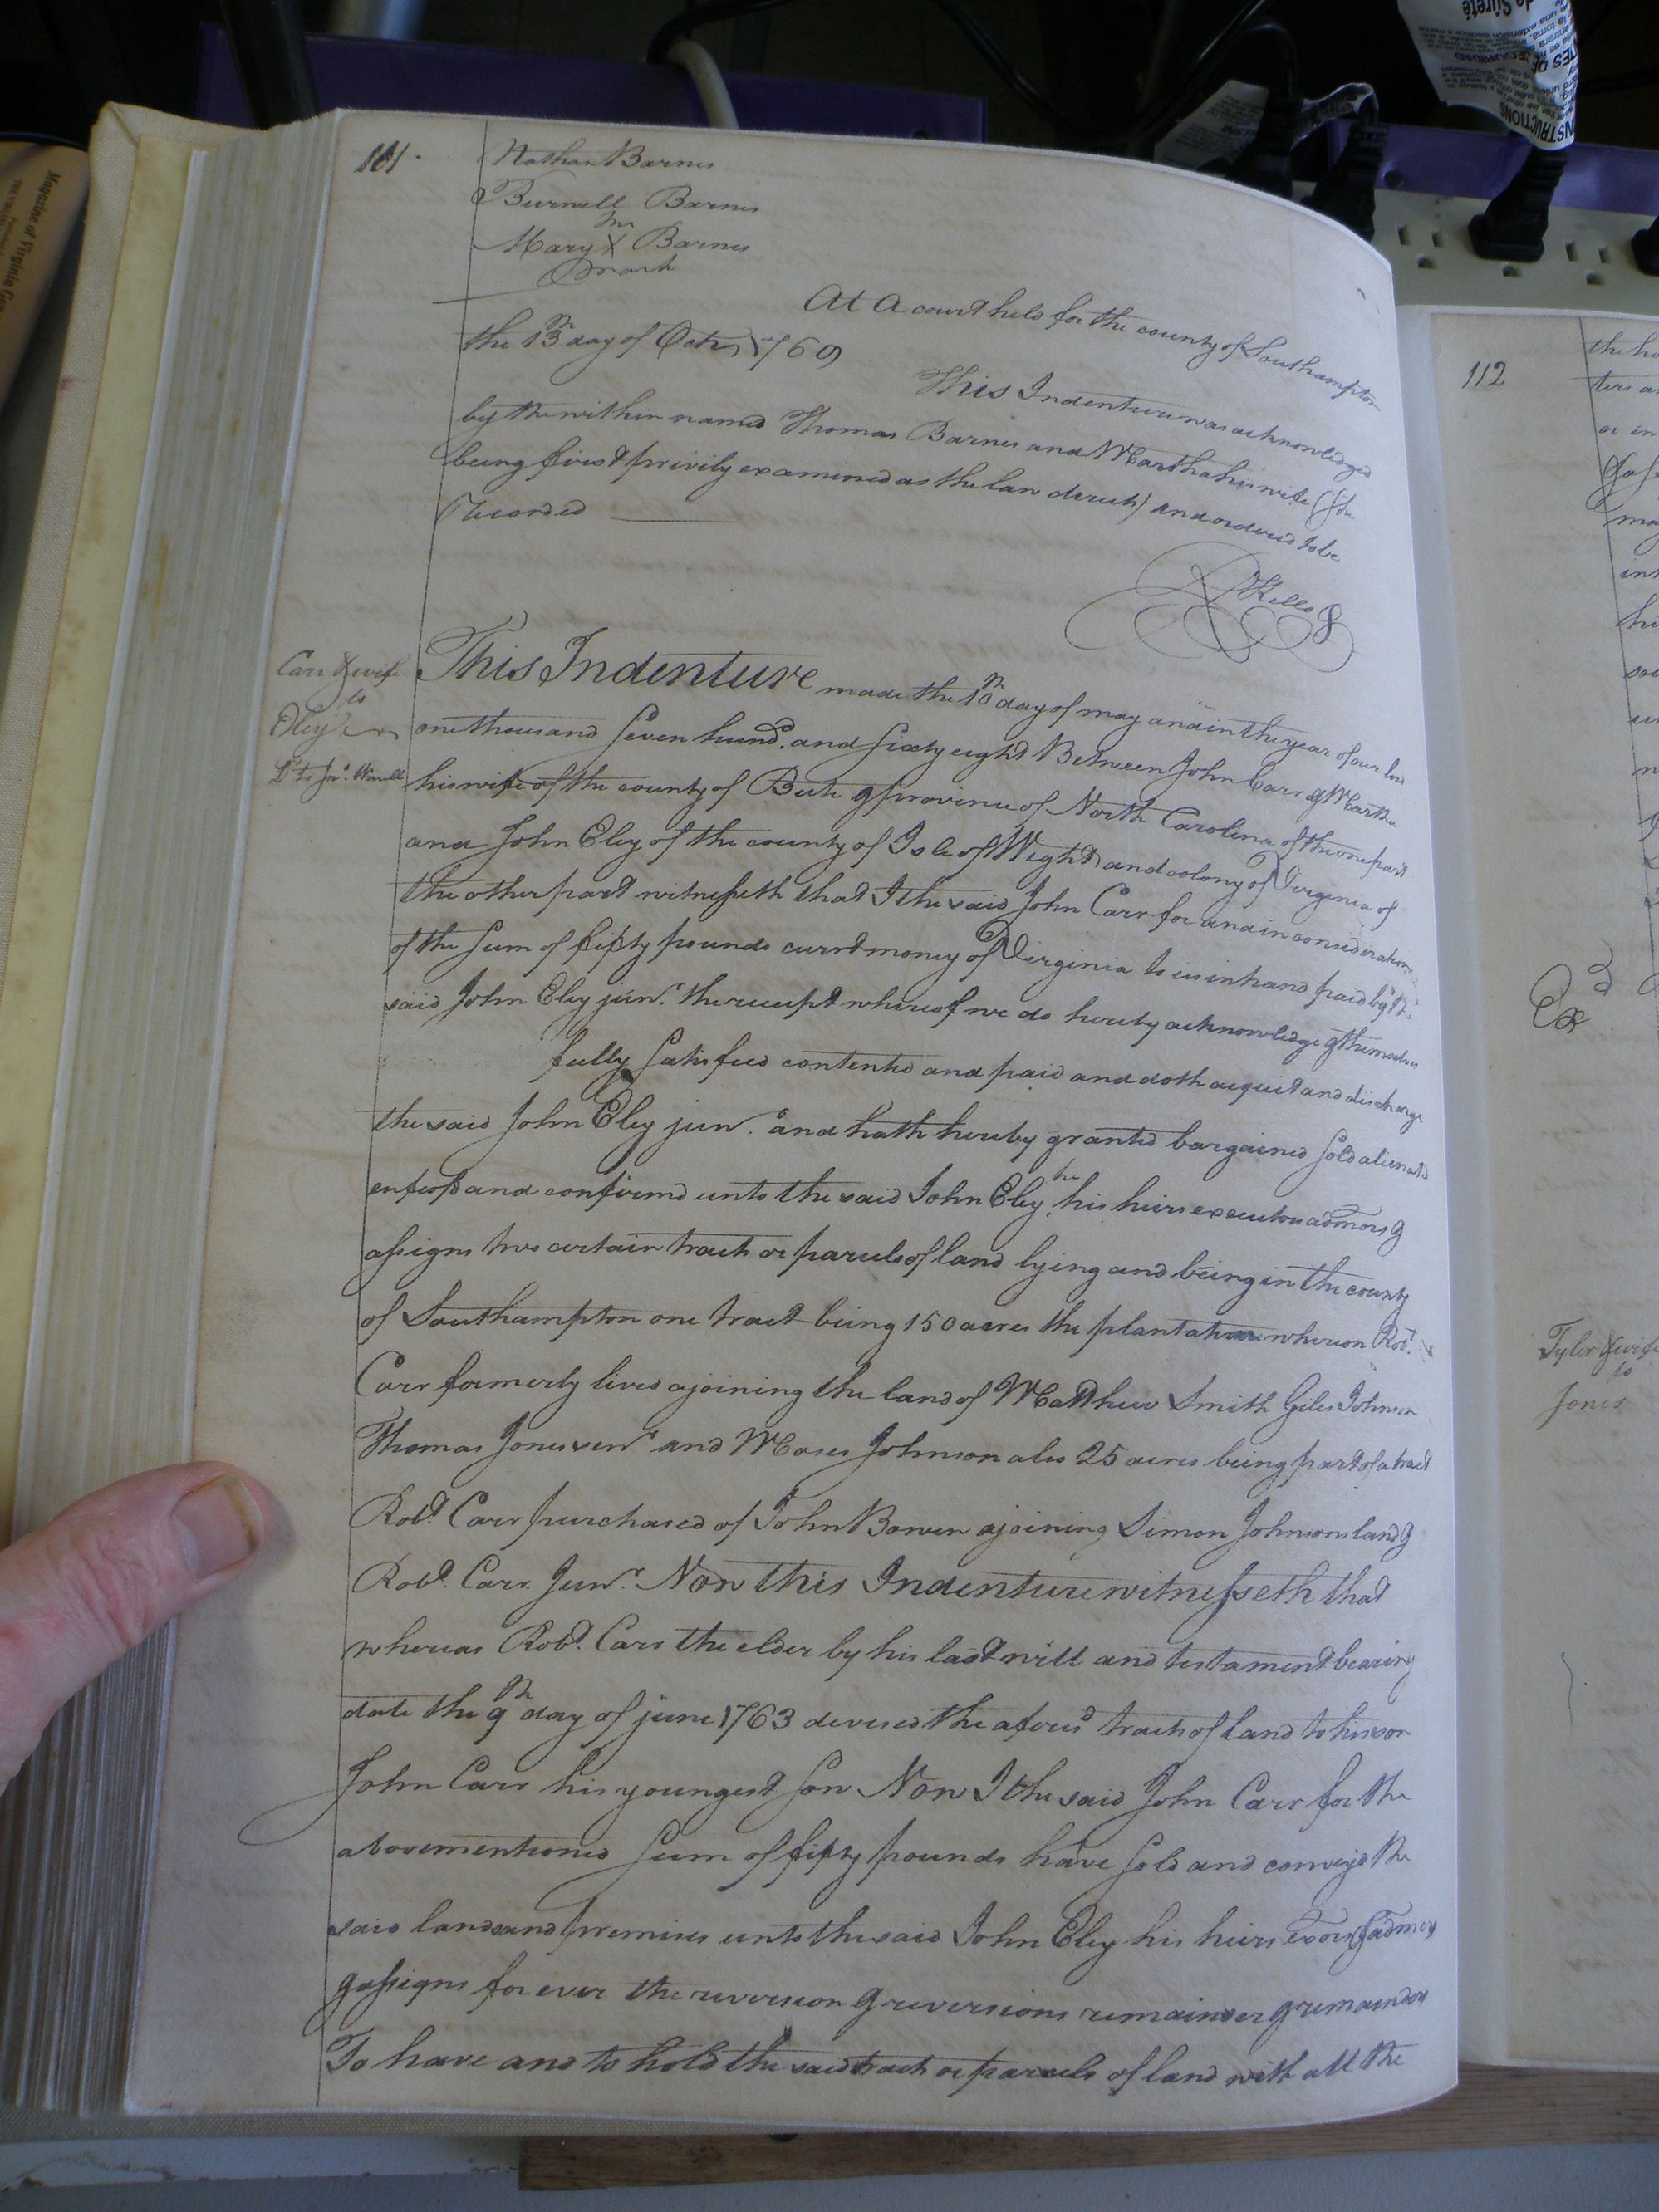 101.
Nathan Barnes
Burnell Barnes
Mary X Barnes
mark
At A court held for the county of Southampton
the 13th day of Octr 1769
This Indenture was acknowledged
by the within named Thomas Barnes and Martha his wife (she
being first privily examined as the law directs) and ordered to be
Recorded
RKello
Carr & wife
to
Eley
Dd to Jno. Worrell
This Indenture made the 10th day of may and in the year of our lord
one thousand Seven hund. and Sixty eight Between John Carr & Martha
his wife of the county of Bute & province of North Carolina of the one part
and John Eley of the county of Isle of Wight and colony of Virginia of
the other part witnesseth that I the said John Carr for and in consideration
of the Sum of fifty pounds currt money of Virginia to us in hand paid by the
said John Eley junr. the receipt whereof we do hereby acknowledge & themselves
fully Satisfied contented and paid and doth acquit and discharge
the said John Eley junr. and hath hereby granted bargained Sold alienated
enfeofd and confirmd unto the said John Eley his heirs executors admors &
assigns two certain tracts or parcels of land lying and being in the county
of Southampton one tract being 150 acres the plantation whereon Robt.
Carr formerly lived ajoining the land of Matthew Smith Giles Johnson
Thomas Jones senr and Moses Johnson also 25 acres being part of a tract
Robt. Carr purchased of John Bowen ajoining Simon Johnsons land &
Robt. Carr Junr. Now this Indenture witnesseth that
whereas Robt. Carr the elder by his last will and testament bearing
date the 9th day of june 1763 devised the aforesd tracts of land to his son
John Carr his youngest Son Now I the said John Carr for the
abovementioned Sum of fifty pounds have Sold and conveyd the
said lands and premises unto the said John Eley his heirs Exors & admors
& assigns for ever the reversion & reversions remainder & remainders
To have and to hold the said tracts or parcels of land with all the
112
the ho
ters a
or in
ma
int
hi
Exd
Tyler & wife
to
Jones
Magazine of Virginia
de Sûreté
INSTRUCTIONS